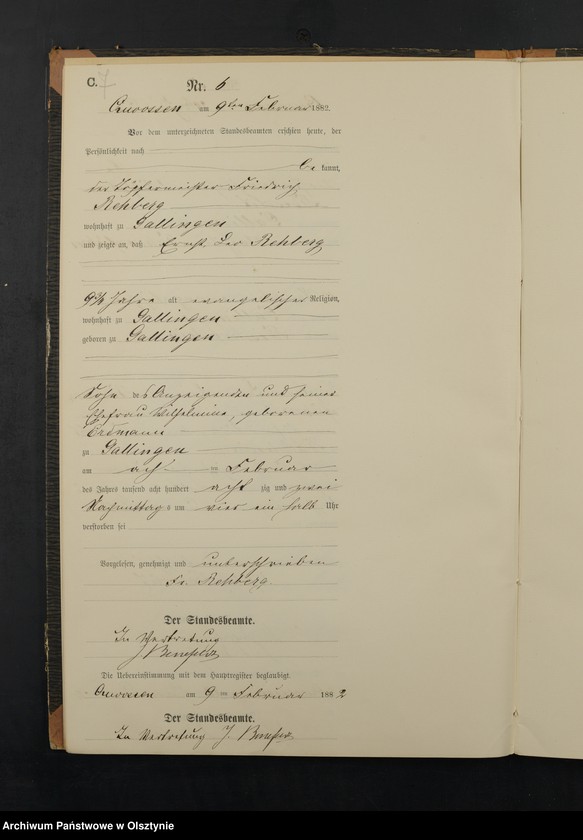 C. 7
Nr. 6
am 9ten Februar 1882.
Vor dem unterzeichneten Standesbeamten erschien heute, der
Persönlichkeit nach
be kannt,
der Töpfermeister Friedrich
Rehberg
wohnhaft zu Gallingen
und zeigte an, daß Ernst Leo Rehberg
Jahre alt evangelischer Religion,
wohnhaft zu Gallingen
geboren zu Gallingen
Sohn des Anzeigenden und seiner
Ehefrau Wilhelmine, geborenen
Erdmann
zu Gallingen
am acht ten Februar
des Jahres tausend acht hundert acht zig und zwei
Nachmittags um vier ein halb Uhr
verstorben sei
Vorgelesen, genehmigt und unterschrieben
Fr. Rehberg.
Der Standesbeamte.
In Vertretung
J
Die Uebereinstimmung mit dem Hauptregister beglaubigt.
am 9 ten Februar 1882
Der Standesbeamte.
In Vertretung J.
Archiwum Państwowe w Olsztynie